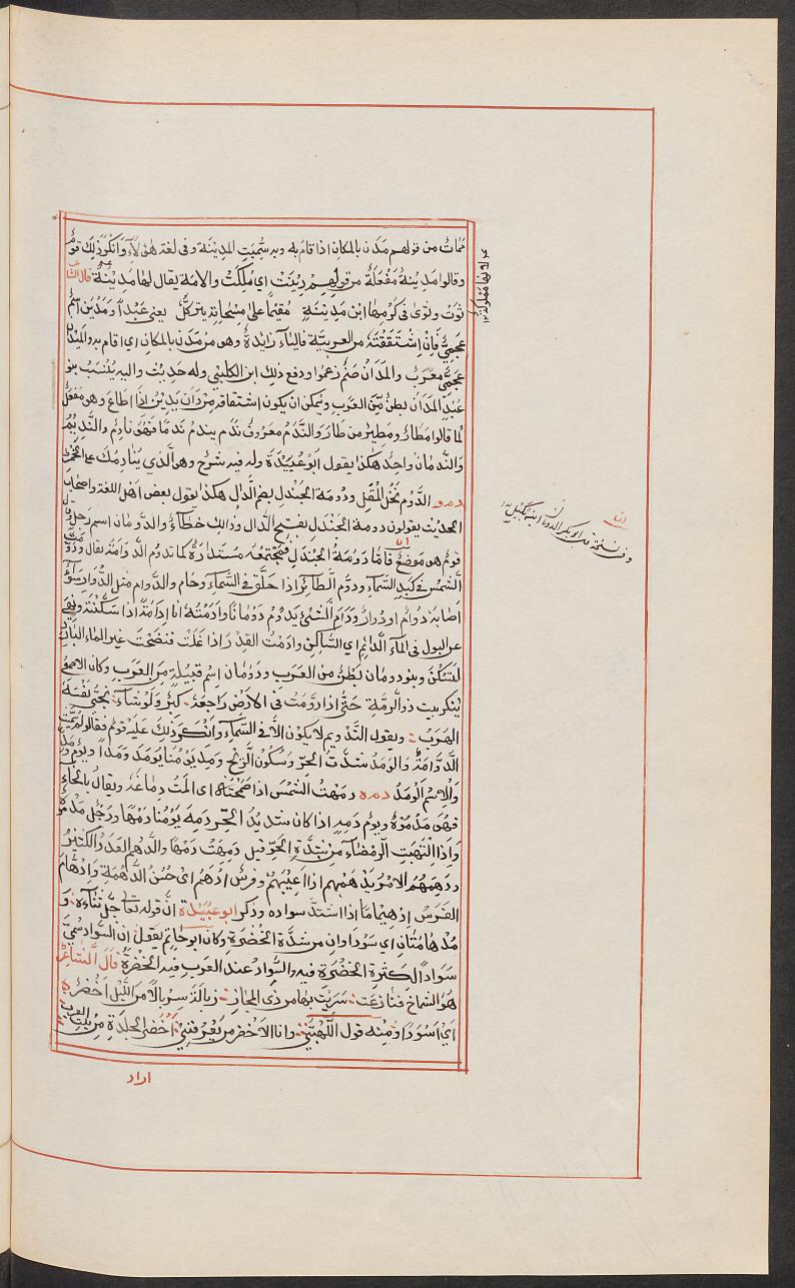 ممات من قولهم مَدَن بالمكان اذا قام به وبه سُمّيت المدينة وفى لغة هٰؤلاء وانكر ذلك قوم
وقالوا مدينة مَفعلة من قولهم دِينَت اي مُلِكَت والامة يقال لها مدينة قال الشاعر
ثوت وثوى فى كرمها ابن مدينة مقيماً على مسحاته يتركل يعنى عبداً ومَدْيَن اسم
عجمي فان اشتققته من العربية فالياء زايدة وهى من مدن بالمكان اي اقام به والميدان
عجمي معرّب والمَدَان صنم زعموا ودفع ذلك ابن الكلبي وله حديث واليه ينسب بنو
عبد المدان بطن من العرب ويمكن ان يكون اشتقاقه من دَانَ يدين اذا اطاع وهو مفعل
كما قالوا مطار ومطير من طار والندم معروف ندم يندم ندما فهو نادم والنديم
والندمان واحد هكذا يقول ابو عبيدة وله فيه شرح وهو الذي ينادمك على الخمر
دمو الدوم نخل المقل ودومة الجندل بضم الدال هكذا يقول بعض اهل اللغة واصحاب
الحديث يقولون دومة الجندل بفتح الدال وذالك خطاء والدومان اسم رجل قال
قوم هو موضع فاما دومة الجندل فمجتمعه مستدارة كما تدوم الدوامة يقال
الشمس فى كبد السماء ودوم الطائر اذا حلق فى السماء وحام والدوام مثل الدوار سواء
اصابه دوام او دوار ودام الشئ يدوم دوما نا وادمته انا ادامة اذا سكنته ونهى
عن البول فى الماء الدائم اي الساكن وادمت القدر اذا غلت فنضحت غير الماء البارد
لتسكن وبنو دومان بطن من العرب ودومان اسم قبيلة من العرب وكان الاصمعى
ينكر بيت ذو الرمة حتى اذا دومت فى الارض راجعه كبر ولو شاء نجى نفسه
الهرب ويقول التدويم لا يكون الا فى السماء وانكر ذلك عليه قوم فقالوا لم سميت
الدوامة والومد شدت الحر وسكون الريح ومد يومنا يومد ومداً ويوم ومد
والاسم الومد دمه ودمهت الشمس اذا صمخته اي المت دماغه ويقال بالحاء
فهو مدموه ويوم دمه اذا كان شديد الحر دمه يومنا دمها ورجل مدموه
واذا التهبت الرمضاء من شدة الحر قيل دمهت دمها والدهم العدد الكثير
ودهمهم الامر يدهمهم اذا اغشيهم وفرس ادهم اى حسن الدهمة وادهام
الفرس ادهيماما اذا اشتد سواده وذكر ابو عبيدة ان قوله تعا جل ثناءه و
مدهامتان اي سودا وان من شدة الخضرة وكان ابو حاتم يقول ان السواد سمى
سواداً لكثرة الخضرة فيه والسواد عند العرب فيه الخضرة قال الشاعر
هو الشماخ سريت بها من ذى المجاز سربالا من الليل اخضر
اي اسودا ومنه قول اللهبي وانا الاخضر من يعرفني اخضر الجلدة من بيت العرب
اراد